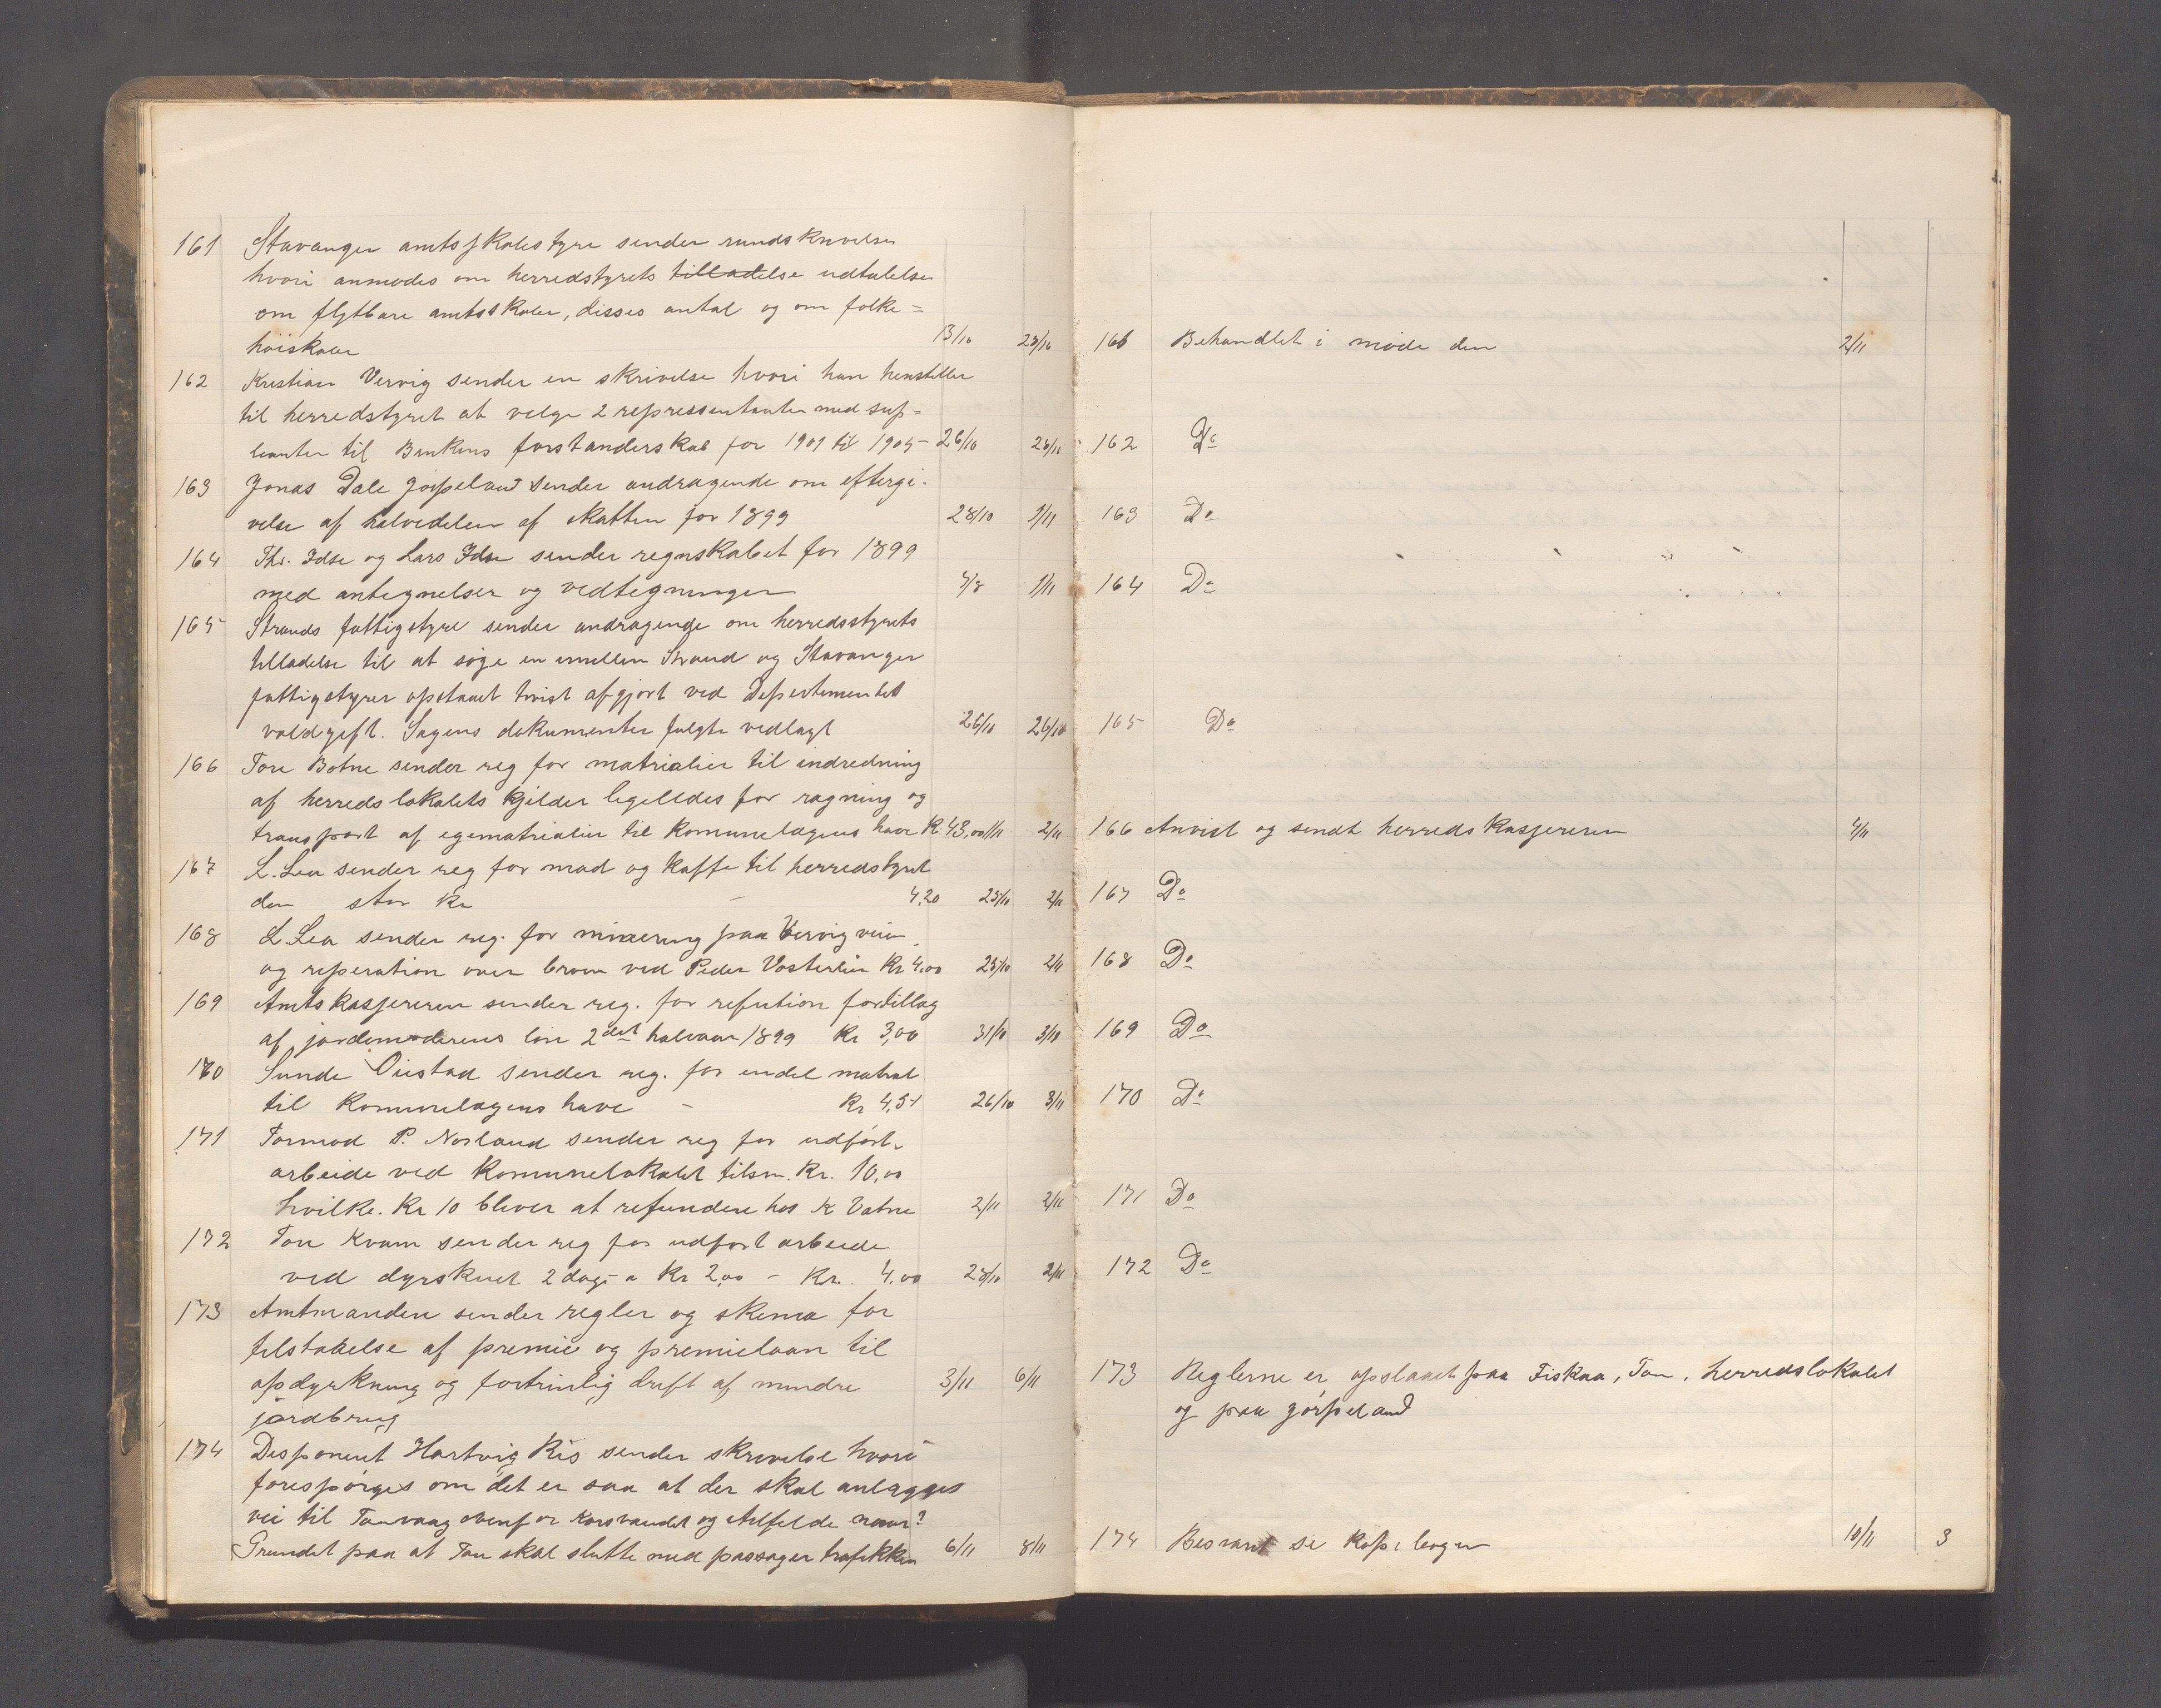 161 Stavanger amtsskolestyre sender rundskrivelse
hvori anmodes om herredstyrets tilladelse udtalelse
om flytbare amtsskoler, disses antal og om folke=
høiskoler 13/10 23/10
162 Kristian Vervig sender en skrivelse hvori han henstiller
til herredstyret at velge 2 repressentanter med sup=
leanter til Bankens forstanderskab for 1901 til 1905 26/10 26/10
163 Jonas Dale Jørpeland sender andragende om eftergi-
velse af halvedelen af skatten for 1899 28/10 1/11
164 Thr. Idse og Lars Idse sender regnskabet for 1899
med antegnelser og vedtegninger 5/8 1/11
165 Strands fattigstyre sender andragende om herredsstyrets
tilladelse til at søge en imellem Strand og Stavanger
fattigstyrer opstaaet tvist afgjort ved Departementets
voldgift. Sagens dokumenter fulgte vedlagt 26/10 26/10
166 Tore Botne sender reg for matrialier til indredning
af herredslokalets kjelder ligelldes for ragning og
transport af egematrialier til komunelagens have Kr 43,00 1/11 2/11
167 L. Lea sender reg for mad og kaffe til herredstyret
den stor Kr - 4,20 25/10 2/11
168 L. Lea sender reg. for minering paa Vervigveien
og reperation over broen ved Peder Vosterlien Kr 4,00 25/10 2/11
169 Amtskassereren sender reg. for refution for tillæg
af jordemoderens løn 2det halvaar 1899 Kr 3,00 31/10 3/10
170 Sunde Øiestad sender reg. for endel matral
til Komunelagens have - Kr 4,51 26/10 3/11
171 Tormod P. Norland sender reg for udført
arbeide ved Komunelokalet tilsm. Kr. 10,00
hvilke. Kr 10 bliver at refundere hos K Vatne 2/11 2/11
172 Tore Kvam sender reg for udført arbeide
ved dyrskuet 2 dage a Kr 2,00 - Kr. 4,00 28/10 2/11
173 Amtmanden sender regler og skema for
tilstaaelse af premie og premielaan til
opdyrkning og fortrinlig drift af mindre 3/11 6/11
jordbrug
174 Disponent Hartvig Riis sender skrivelse hvori
forespørges om det er saa at der skal anlægges
vei til Tauvaag ovenfor Korsvandet og Alfelde naar?
Grundet paa at Tau skal slutte med passager trafikken 6/11 8/11
161 Behandlet i møde den 2/11
162 Do
163 Do
164 Do
165 Do
166 Anvist og sendt herredskassereren 4/11
167 Do
168 Do
169 Do
170 Do
171 Do
172 Do
173 Reglerne er opslaaet paa Fiskaa, Tau, herredslokalet
og paa Jørpeland
174 Besvart se kopibogen 10/11 3